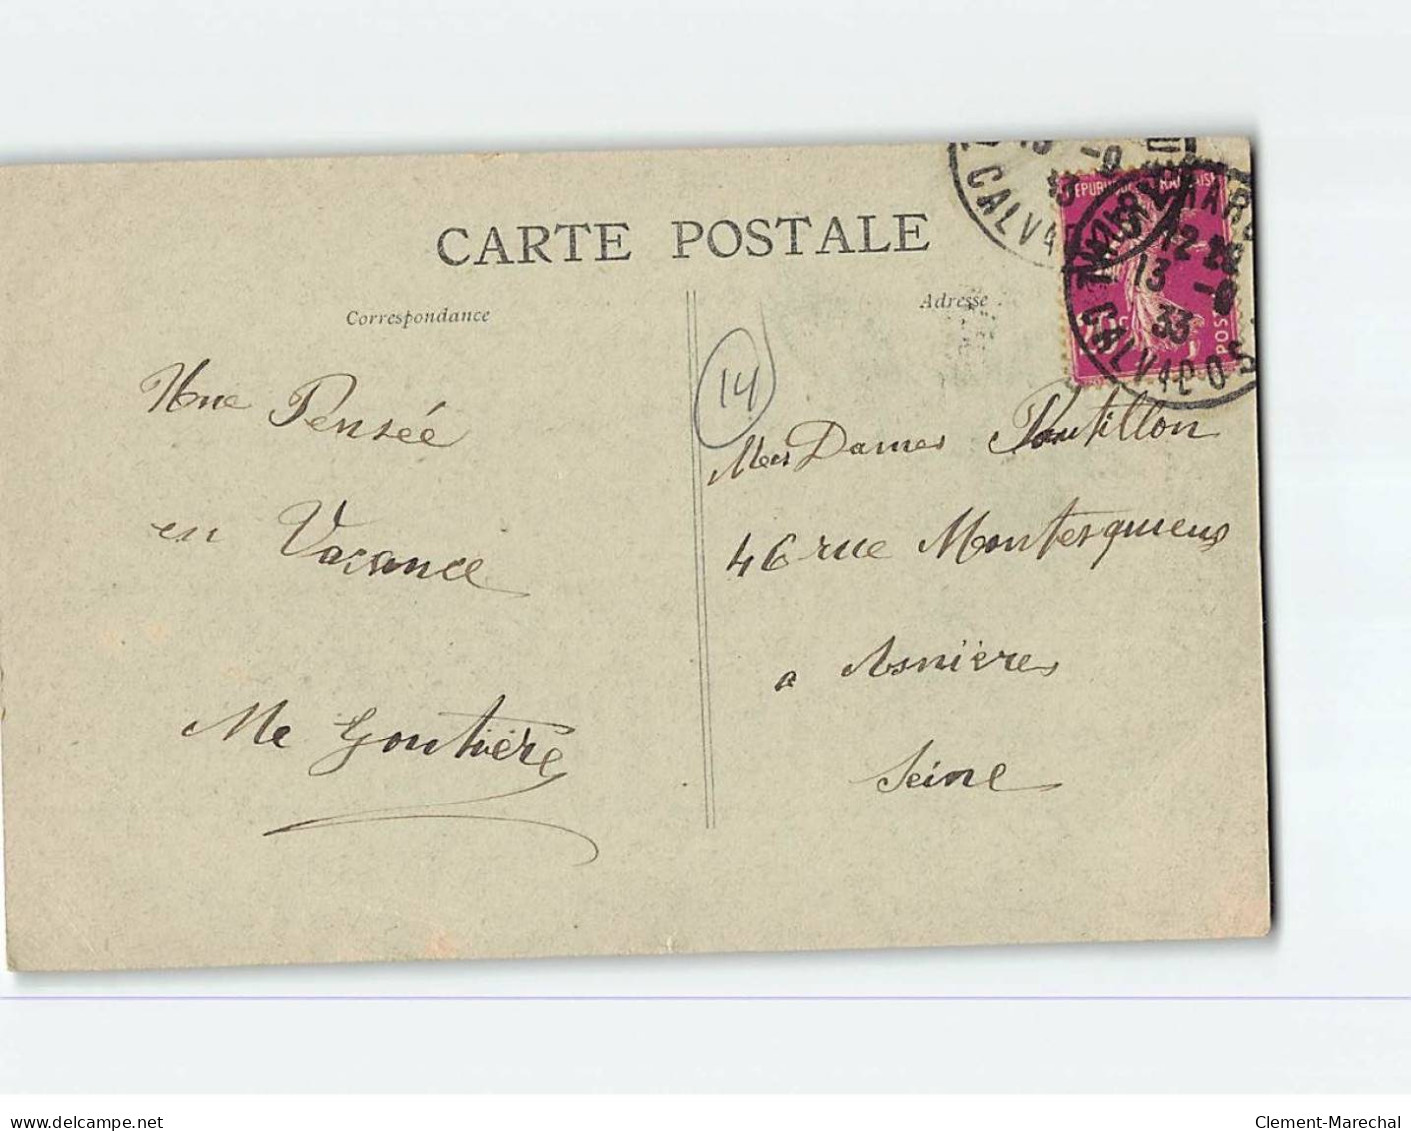 CARTE POSTALE
Correspondance
Adresse
14
Une Pensée
en Vacance
Me Goutière
Mes Dames Pautillon
46 rue Montesquieus
a Asnières
Seine
CALVADOS
12
13
33
CALVADOS
POSTES
delcampe.net
Clement-Marechal